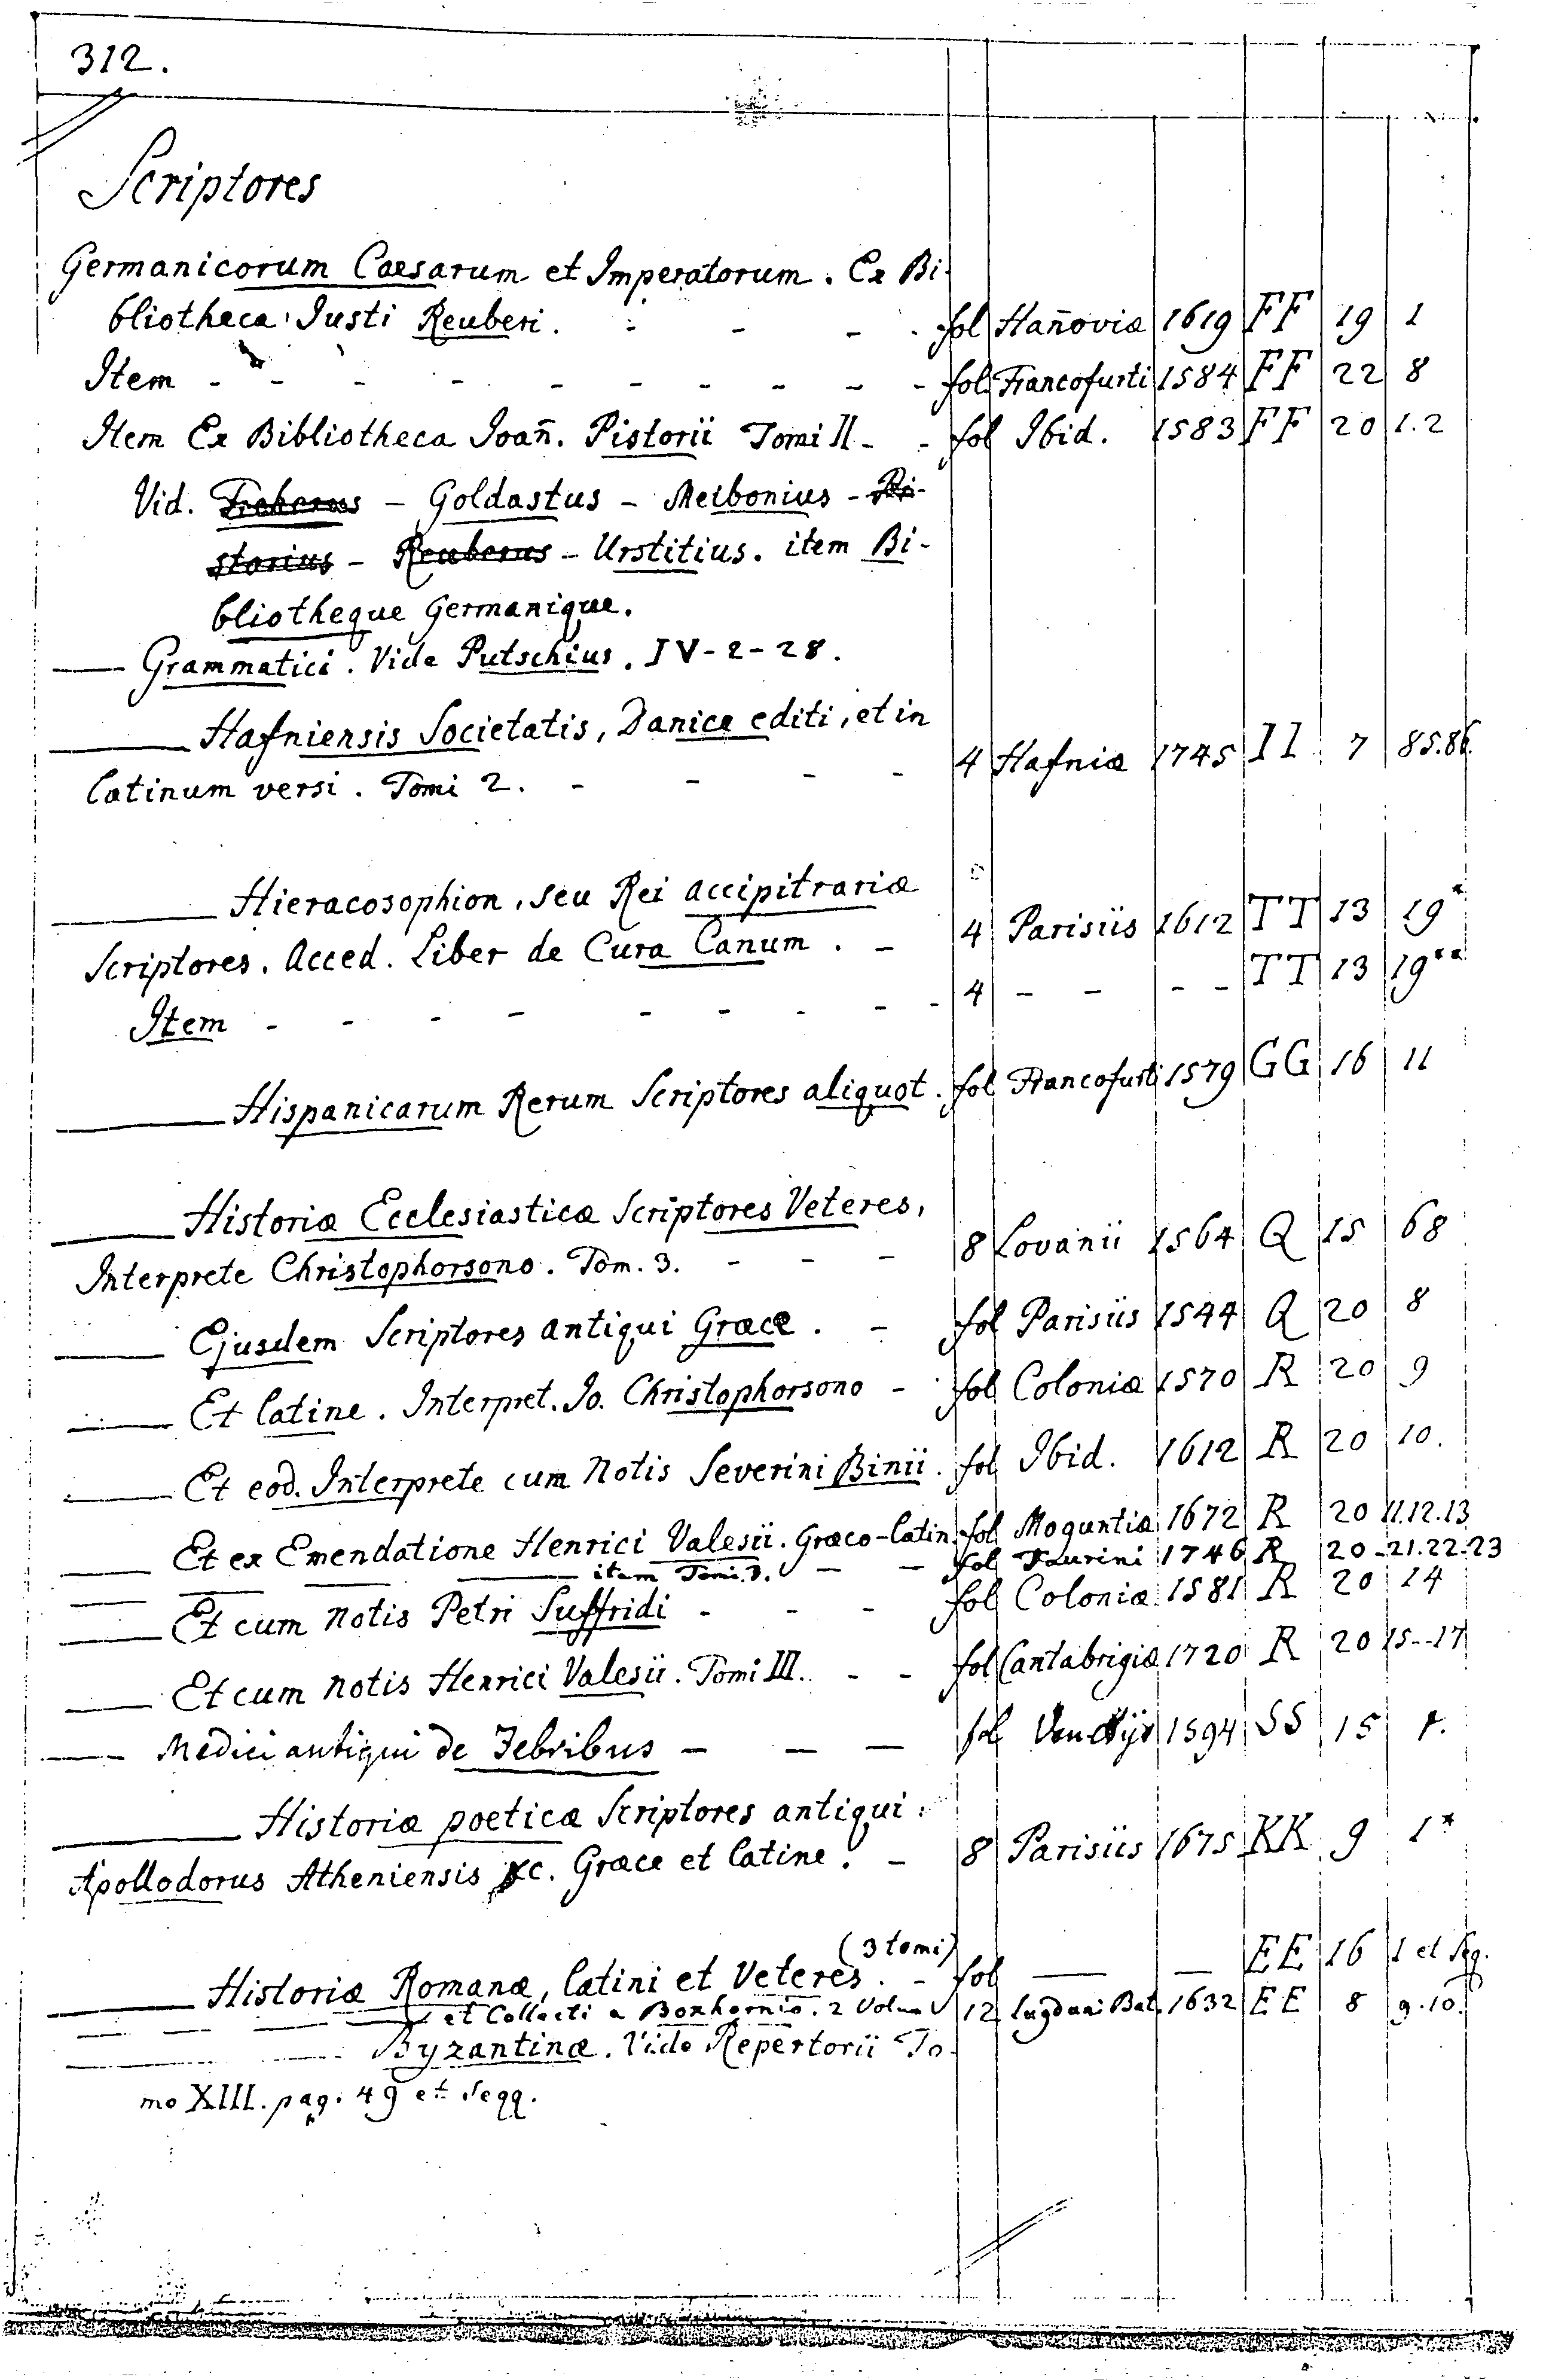 312.
Scriptores
Germanicorum Caesarum et Imperatorum. Ex Bi-
bliotheca Justi Reuberi. - - - fol Hañoviæ 1619 FF 19 1
Item - - - - - - - - - fol Francofurti 1584 FF 22 8
Item Ex Bibliotheca Joañ. Pistorii Tomi II - - fol Ibid. 1583 FF 20 1.2
Vid. Freherus - Goldastus - Meibonius - Pi-
storius - Reuberus - Urstitius. item Bi-
bliotheque Germanique.
— Grammatici. Vide Putschius. IV-2-28.
— Hafniensis Societatis, Danice editi, et in
Latinum versi. Tomi 2. - - - - 4 Hafniæ 1745 II 7 85.86.
— Hieracosophion, seu Rei accipitrariæ
Scriptores. Acced. Liber de Cura Canum. - 4 Parisiis 1612 TT 13 19*
Item - - - - - - - - - 4 - - - - TT 13 19**
— Hispanicarum Rerum Scriptores aliquot. fol Francofurti 1579 GG 16 11
— Historiæ Ecclesiasticæ Scriptores Veteres,
Interprete Christophorsono. Tom. 3. - - - 8 Lovanii 1564 Q 15 68
— Ejusdem Scriptores antiqui Græce. - fol Parisiis 1544 Q 20 8
— Et Latine. Interpret. Jo. Christophorsono - fol Coloniæ 1570 R 20 9
— Et eod. Interprete cum Notis Severini Binii. fol Ibid. 1612 R 20 10.
— Et ex Emendatione Henrici Valesii. Græco-Latin. fol Moguntiæ 1672 R 20 11.12.13
— — — — item Tomi 3. - - fol Taurini 1746 R 20 - 21.22.23
— Et cum notis Petri Suffridi - - - fol Coloniæ 1581 R 20 14
— Et cum notis Henrici Valesii. Tomi III. - - fol Cantabrigiæ 1720 R 20 15--17
— Medici antiqui de Febribus — — — fol Venetijs 1594 SS 15
— Historiæ poeticæ Scriptores antiqui.
Apollodorus Atheniensis &c. Græce et Latine. - 8 Parisiis 1675 KK 9 1*
(3 tomi)
— Historiæ Romanæ, Latini et Veteres. - fol — — EE 16 1 et seq.
— — — et Collecti a Boxhornio. 2 Volum 12 Lugduni Bat. 1632 EE 8 9.10.
— — Byzantinæ. Vide Repertorii To-
mo XIII. pag. 49 et seqq.